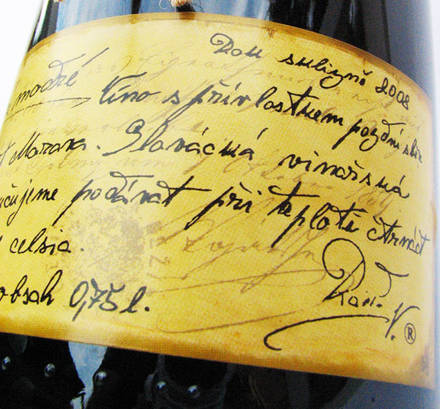 Rok sklizně 2002
modré Víno s přívlastkem pozdní sběr
Morava. Slovácká vinařská
čujeme podávat při teplotě čtrnáct
celsia.
obsah 0,75 l.
V. ®